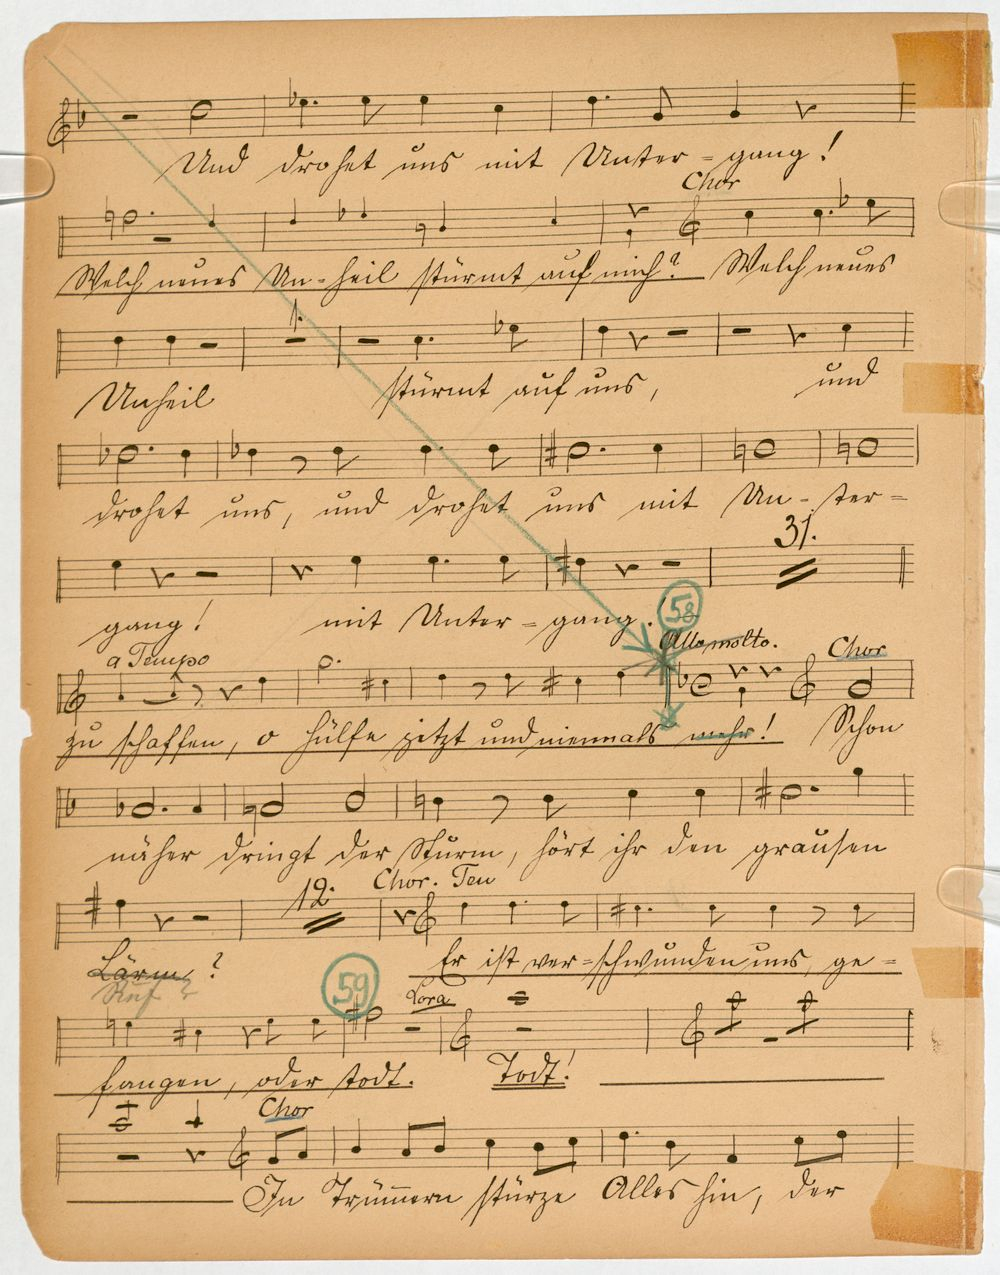 Und drohet uns mit Unter-gang!
Chor
Welch neues Un-heil stürmt auf mich? Welch neues
Unheil stürmt auf uns, und
drohet uns, und drohet uns mit Un-ter-
31.
gang! mit Unter-gang.
58
a Tempo Allo molto. Chor
zu schaffen, o hülfe jetzt und niemals mehr! Schon
näher dringt der Sturm, hört ihr den grausen
12. Chor. Ten
Lärm? Er ist ver-schwunden uns, ge-
Ruf
59 Lora
fangen, oder todt. Todt!
Chor
In Trümern stürze Alles hin, der